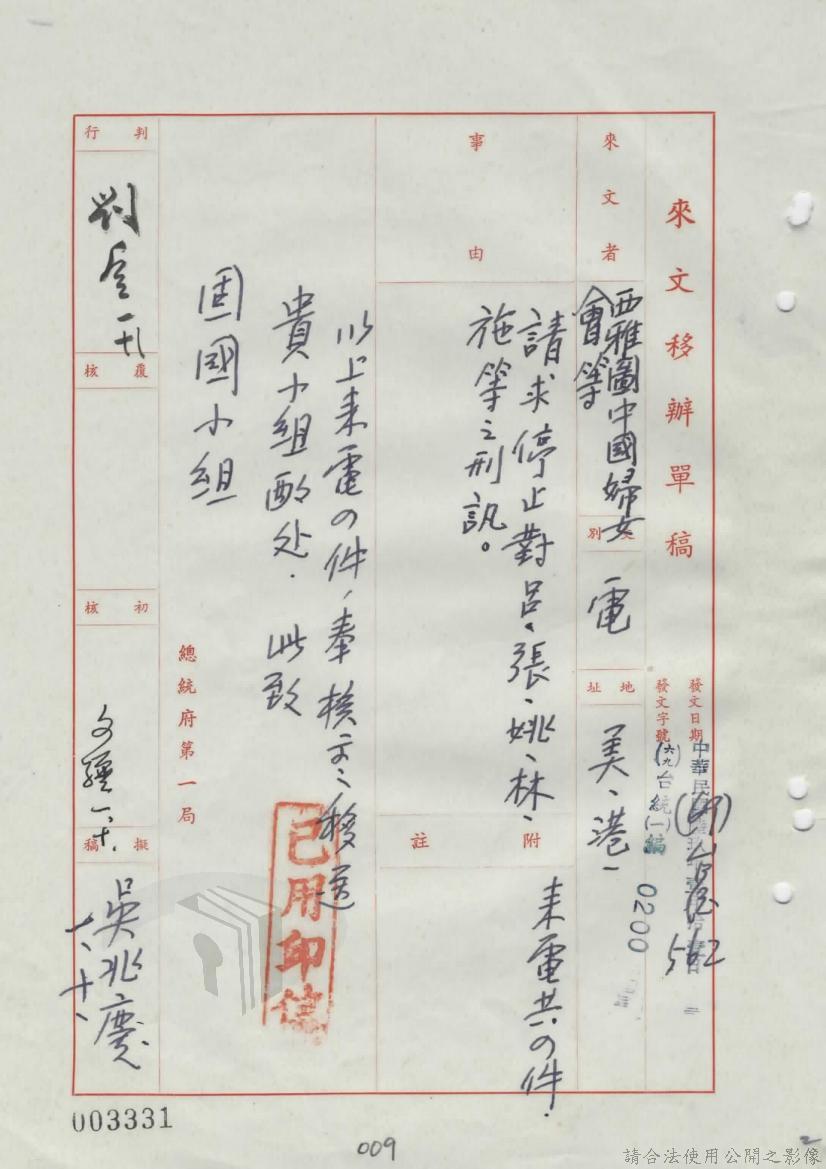 來文移辦單稿
發文日期
中華民國
發文字號
(六九)台統(一)
0200
562
來文者
西雅圖中國婦女
會等
文別
電
地址
美、港、
事由
請求停止對呂、張、姚、林、
施等之刑訊。
附註
來電共4件.
以上來電4件,奉核示:移送
貴小組酌处. 此致
固國小組
總統府第一局
已用印信
判行
覆核
初核
擬稿
吳兆慶
003331
009
2
請合法使用公開之影像